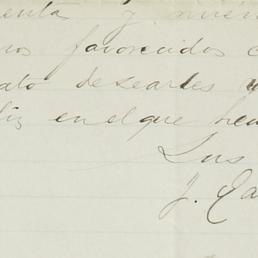 enta y nuev
nos favorecidos c
ato desearles u
liz en el que hem
Sus
J. Ca